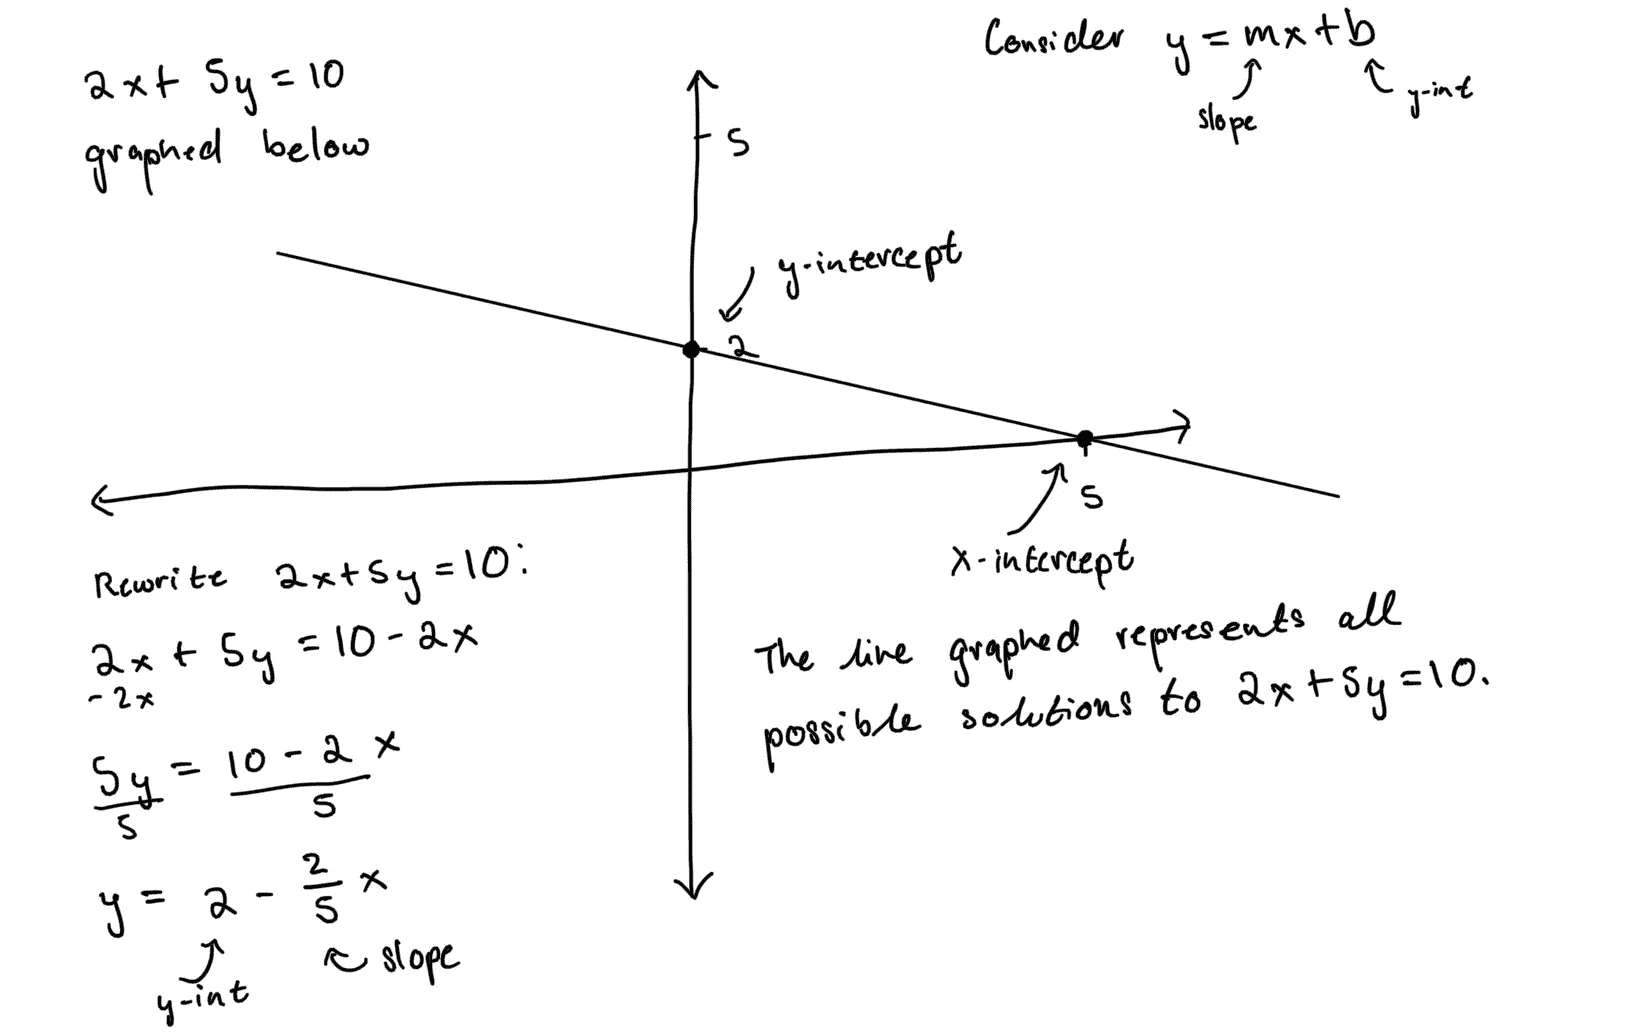 2x + 5y = 10
graphed below
Consider y = mx + b
slope
y-int
5
y-intercept
2
5
x-intercept
Rewrite 2x + 5y = 10:
2x + 5y = 10 - 2x
-2x
5y = 10 - 2x
5 5
y = 2 - 2/5 x
y-int
slope
The line graphed represents all
possible solutions to 2x + 5y = 10.